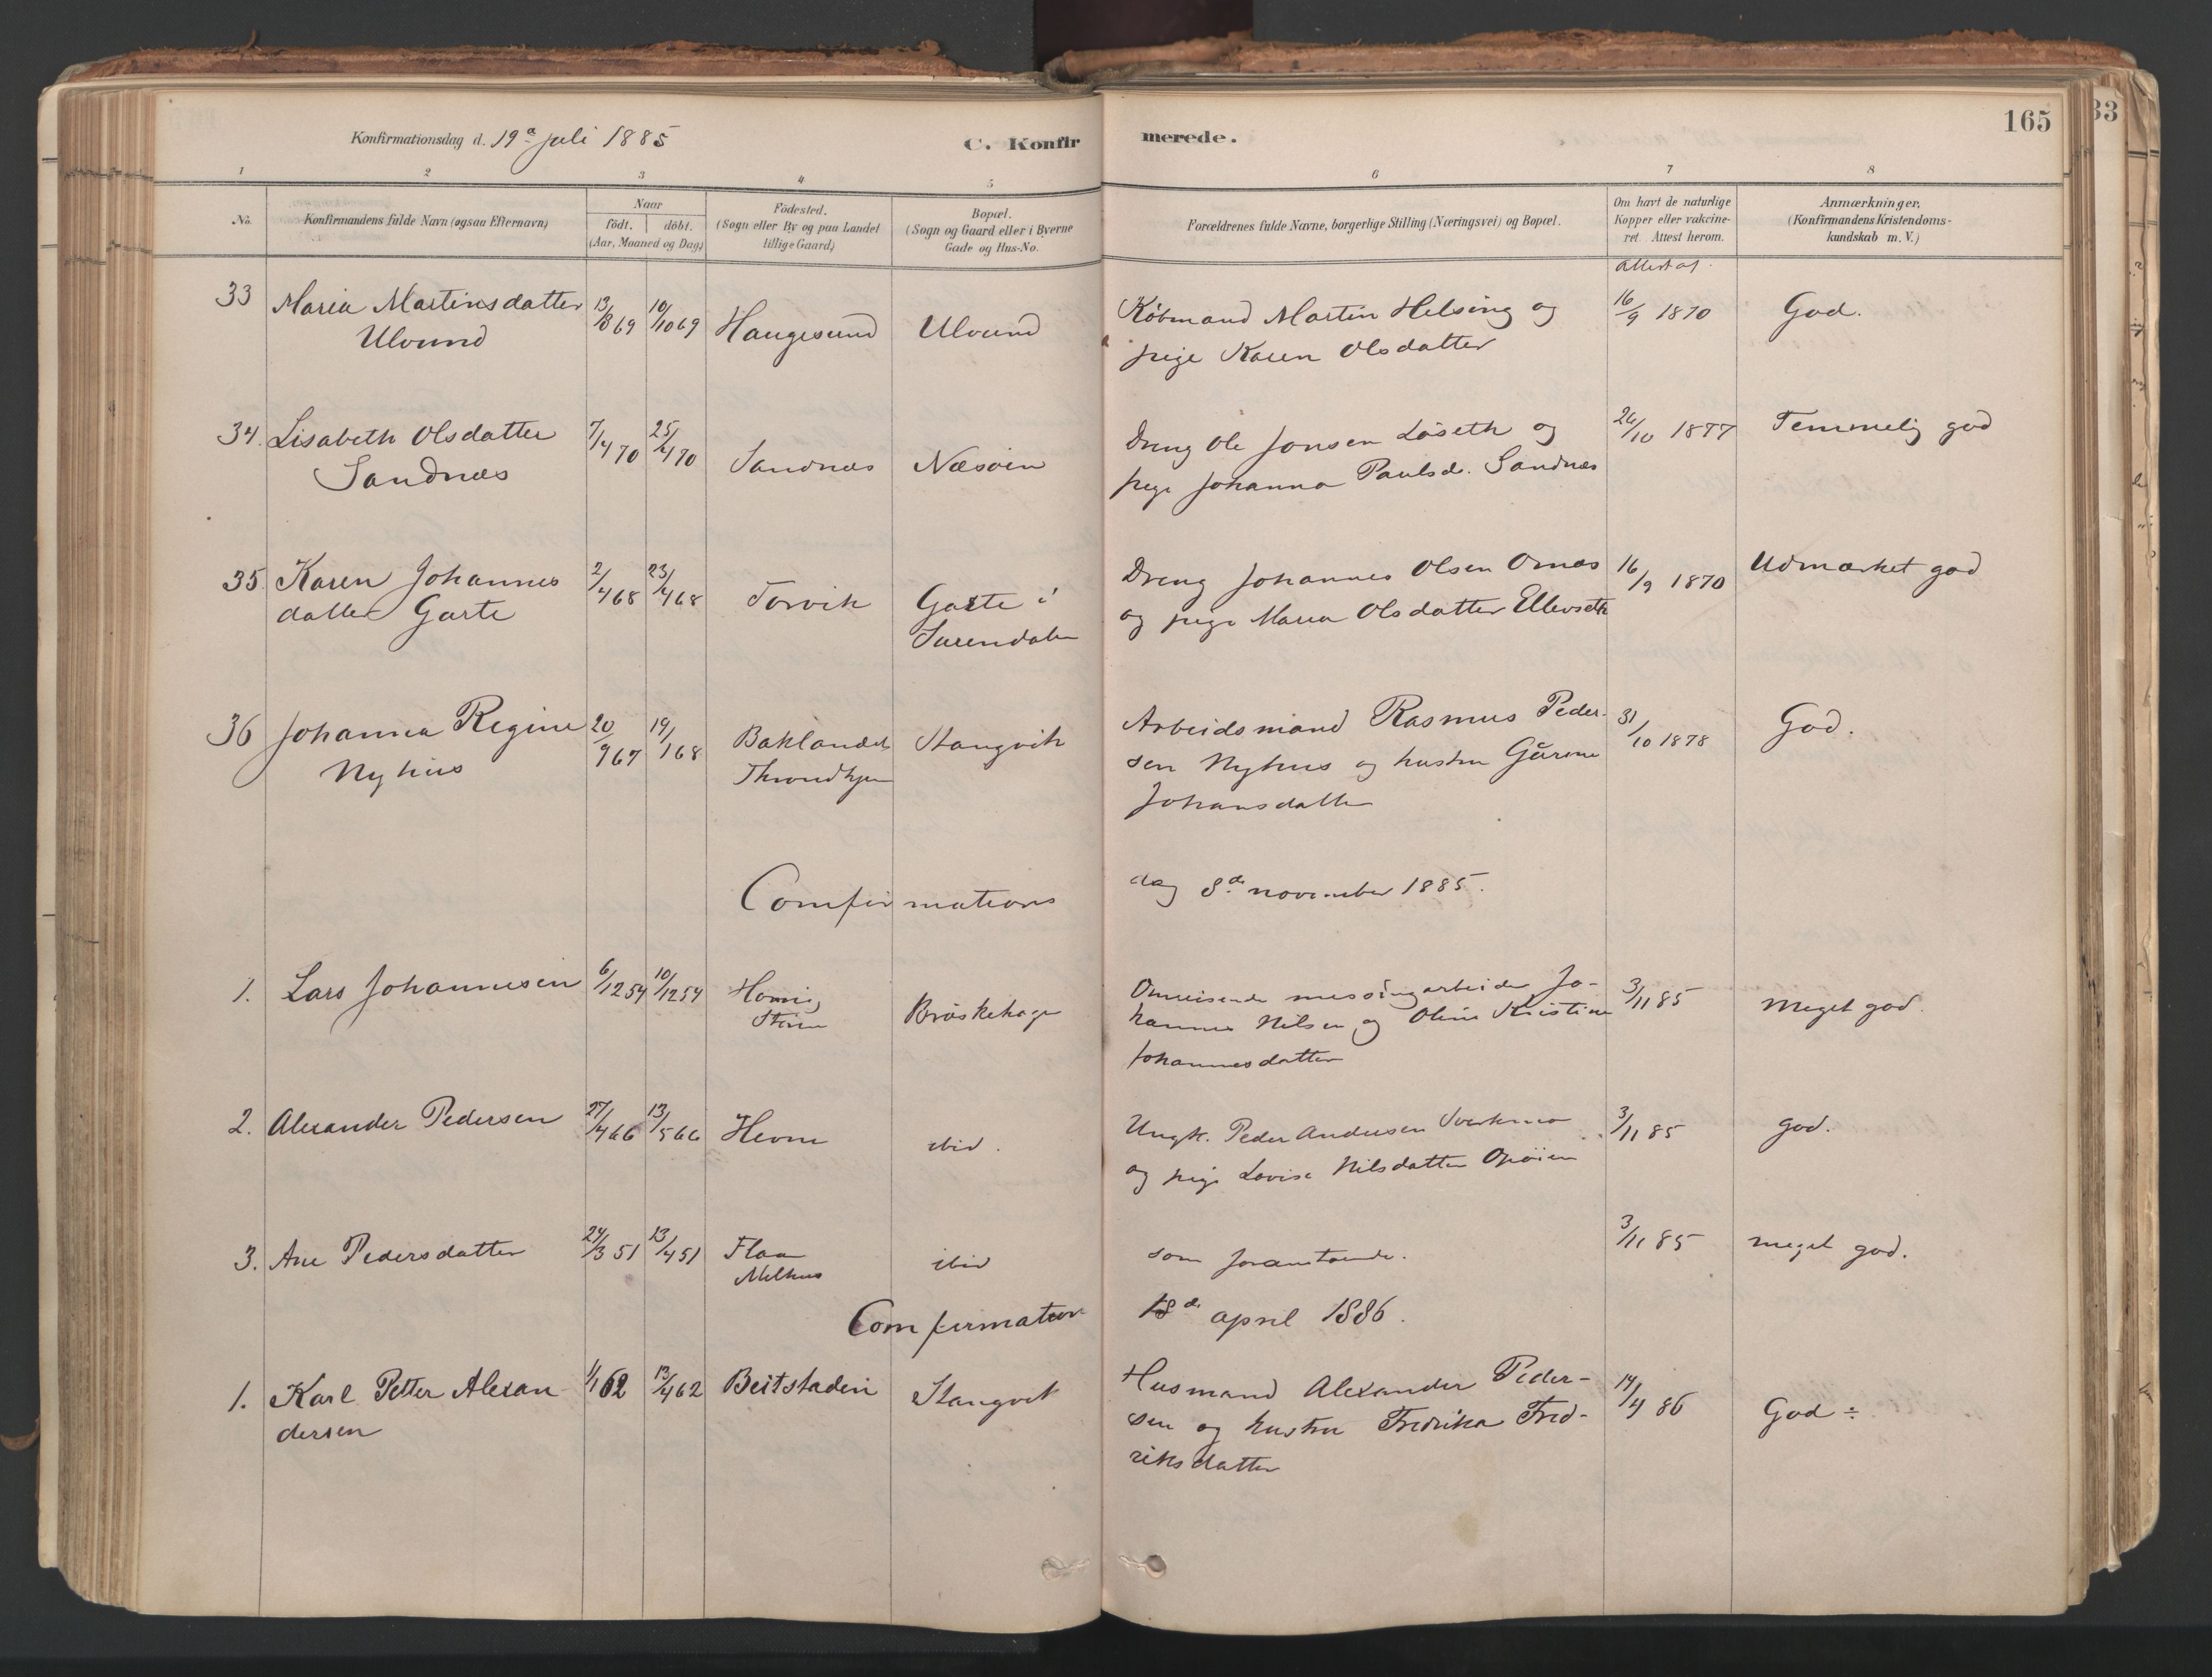 165
33
Konfirmationsdag d. 19de juli 1885
C. Konfirmerede.
1 2 3 4 5 6 7 8
No.
Konfirmandens fulde Navn (ogsaa Efternavn)
Naar
födt. döbt.
(Aar, Maaned og Dag)
Födested.
(Sogn eller By og paa Landet
tillige Gaard)
Bopæl.
(Sogn og Gaard eller i Byerne
Gade og Hus-No.
Forældrenes fulde Navne, borgerlige Stilling (Næringsvei) og Bopæl.
Om havt de naturlige
Kopper eller vakcine-
ret. Attest herom.
Anmærkninger.
(Konfirmandens Kristendoms-
kundskab m. V.)
Attest af
33 Maria Martinsdatter 13/8 69 10/10 69 Haugesund Ulvund Købmand Martin Helsing og 16/9 1870 God.
Ulvund pige Karen Olsdatter
34. Lisabeth Olsdatter 7/4 70 25/4 70 Sandnæs Næsøien Dreng Ole Jonsen Løseth og 26/10 1877 Temmelig god
Sandnæs pige Johanna Paulsd. Sandnæs
35. Karen Johannes 2/4 68 23/4 68 Torvik Garte i Dreng Johannes Olsen Ornæs 16/9 1870 Udmærket god
datter Garte Surendalen og pige Maria Olsdatter Ellevseth
36 Johanna Regine 20/9 67 19/1 68 Baklandet Stangvik Arbeidsmand Rasmus Peder- 31/10 1878 God.
Nyhus Throndhjem sen Nyhus og hustru Gurine
Johansdatter
Comfirmations dag 8de november 1885.
1. Lars Johannesen 6/12 54 10/12 54 Brøskehage Omreisende messingarbeider Jo- 3/11 85 Meget god.
hannes Nilsen og Oline Kristine
Johannesdatter
2. Alexander Pedersen 27/4 66 13/5 66 Hevne ibid. Ungk. Peder Andersen 3/11 85 god.
og pige Lovise Nilsdatter
3. Ane Pedersdatter 24/3 51 13/4 51 Flaa ibid som foranstaaende. 3/11 85 meget god.
Melhus
Comfirmation 18de april 1886.
1. Karl Petter Alexan- 1/1 62 13/4 62 Beitstaden Stangvik Husmand Alexander Peder- 14/4 86 God ÷
dersen sen og hustru Fredrika Fred-
riksdatter